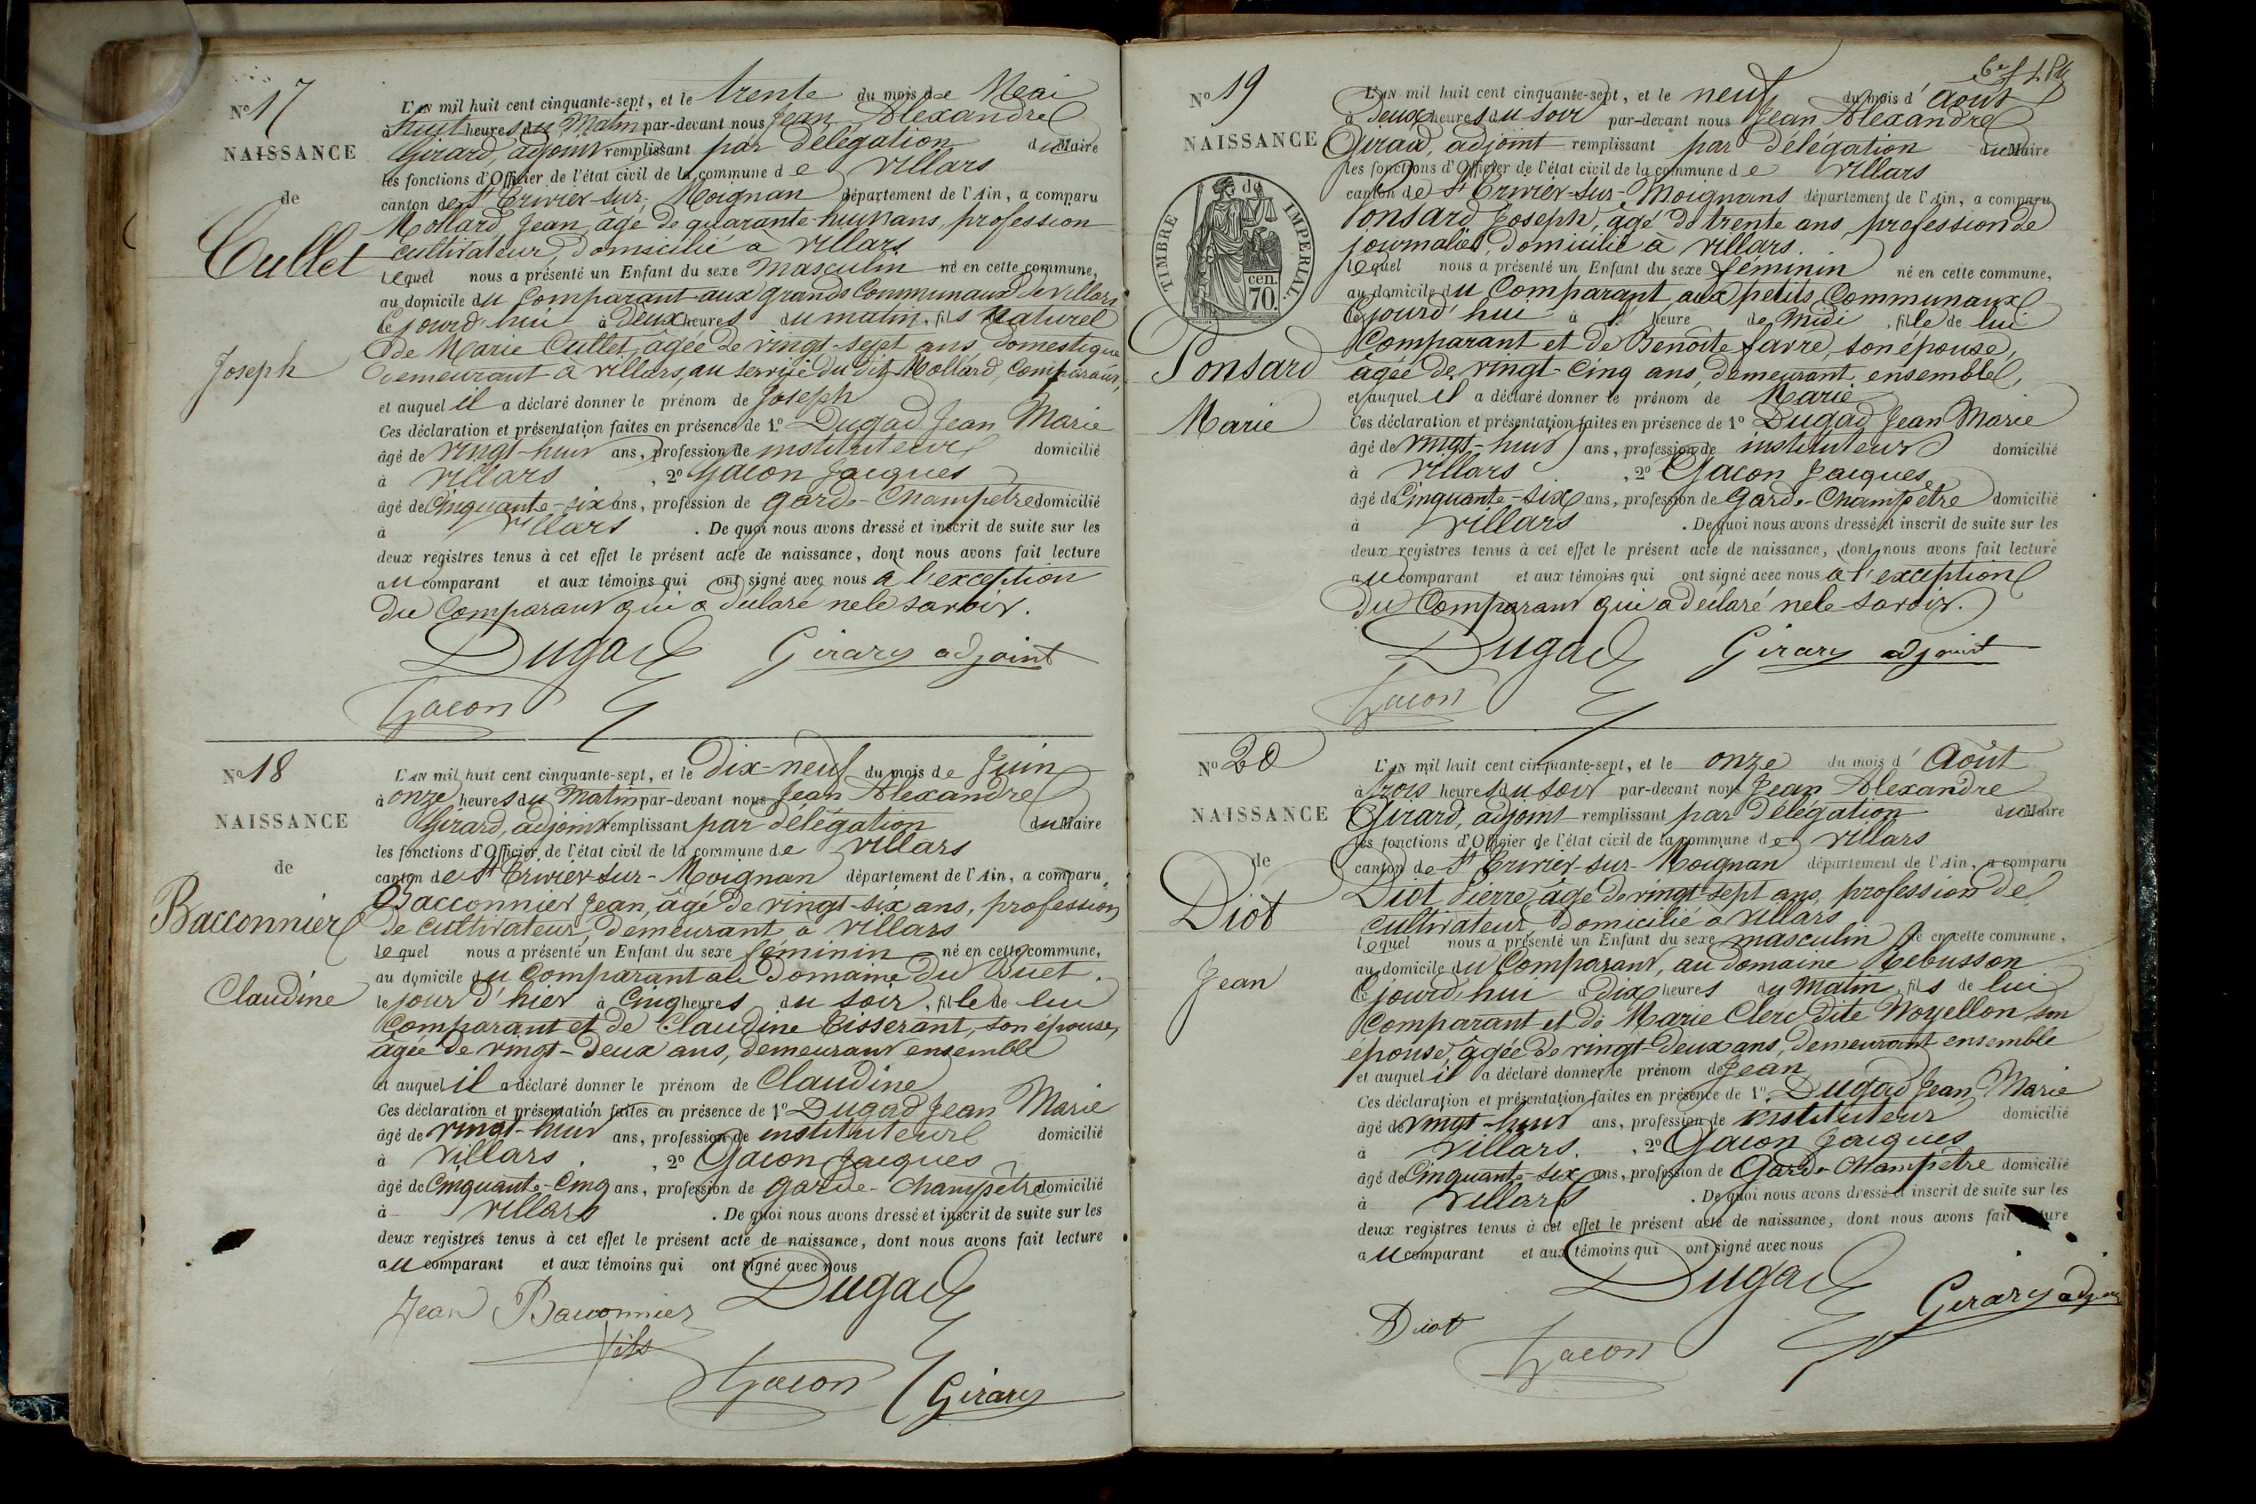 No 17
NAISSANCE
de
Cullet
Joseph
L'AN mil huit cent cinquante-sept, et le trente du mois de Mai
à huit heures du Matin par-devant nous Jean Alexandre
Girard, adjoint remplissant par délégation du Maire
les fonctions d'Officier de l'état civil de la commune de Villars
canton de St Trivier-sur-Moignan département de l'Ain, a comparu
Mollard Jean, âgé de quarante-huit ans, profession
cultivateur, domicilié à Villars
lequel nous a présenté un Enfant du sexe masculin né en cette commune,
au domicile du Comparant aux grands Communaux de Villars
cejourd'hui à deux heures du matin, fils naturel
de Marie Cullet, âgée de vingt-sept ans domestique
demeurant à Villars, au service du dit Mollard, Comparant,
et auquel il a déclaré donner le prénom de Joseph
Ces déclaration et présentation faites en présence de 1o Dugad Jean Marie
âgé de vingt-huit ans, profession de instituteur domicilié
à Villars, 2o Gacon Jacques
âgé de Cinquante-six ans, profession de garde-Champêtre domicilié
à Villars. De quoi nous avons dressé et inscrit de suite sur les
deux registres tenus à cet effet le présent acte de naissance, dont nous avons fait lecture
au comparant et aux témoins qui ont signé avec nous à l'exception
du Comparant qui a déclaré ne le savoir.
Dugad Girard adjoint
Gacon
No 18
NAISSANCE
de
Bacconnier
Claudine
L'AN mil huit cent cinquante-sept, et le dix-neuf du mois de Juin
à onze heures du Matin par-devant nous Jean Alexandre
Girard, adjoint remplissant par délégation du Maire
les fonctions d'Officier de l'état civil de la commune de Villars
canton de St Trivier-sur-Moignan département de l'Ain, a comparu
Bacconnier Jean, âgé de vingt-six ans, profession
de cultivateur, demeurant à Villars
lequel nous a présenté un Enfant du sexe féminin né en cette commune,
au domicile du Comparant au Domaine du Buet.
le jour d'hier à Cinq heures du soir, fille de lui
Comparant et de Claudine Tisserant, son épouse,
âgée de vingt-deux ans, demeurant ensemble
et auquel il a déclaré donner le prénom de Claudine
Ces déclaration et présentation faites en présence de 1o Dugad Jean Marie
âgé de vingt-huit ans, profession de instituteur domicilié
à Villars, 2o Gacon Jacques
âgé de Cinquante-Cinq ans, profession de garde-Champêtre domicilié
à Villars. De quoi nous avons dressé et inscrit de suite sur les
deux registres tenus à cet effet le présent acte de naissance, dont nous avons fait lecture
au comparant et aux témoins qui ont signé avec nous
Jean Bacconnier Dugad
fils
Gacon Girard
No 19
NAISSANCE
de
TIMBRE IMPERIAL.
cen.
70
Ponsard
Marie
L'AN mil huit cent cinquante-sept, et le neuf du mois d'Août
à Deux heures du soir par-devant nous Jean Alexandre
Girard, adjoint remplissant par délégation du Maire
les fonctions d'Officier de l'état civil de la commune de Villars
canton de St Trivier-sur-Moignans département de l'Ain, a comparu
Ponsard Joseph, âgé de trente ans, profession de
journalier, domicilié à Villars.
lequel nous a présenté un Enfant du sexe féminin né en cette commune,
au domicile du Comparant aux petits Communaux
cejourd'hui à l' heure de Midi, fille de lui
Comparant et de Benoîte favre, son épouse,
âgée de vingt-Cinq ans, demeurant ensemble,
et auquel il a déclaré donner le prénom de Marie
Ces déclaration et présentation faites en présence de 1o Dugad Jean Marie
âgé de vingt-huit ans, profession de instituteur domicilié
à Villars, 2o Gacon Jacques
âgé de Cinquante-six ans, profession de Garde-Champêtre domicilié
à Villars. De quoi nous avons dressé et inscrit de suite sur les
deux registres tenus à cet effet le présent acte de naissance, dont nous avons fait lecture
au comparant et aux témoins qui ont signé avec nous à l'exception
du Comparant qui a déclaré ne le savoir.
Dugad Girard adjoint
Gacon
No 20
NAISSANCE
de
Diot
Jean
L'AN mil huit cent cinquante-sept, et le onze du mois d'Août
à trois heures du soir par-devant nous Jean Alexandre
Girard, adjoint remplissant par délégation du Maire
les fonctions d'Officier de l'état civil de la commune de Villars
canton de St Trivier-sur-Moignan département de l'Ain, a comparu
Diot Pierre, âgé de vingt-sept ans, profession de
cultivateur, domicilié à Villars
lequel nous a présenté un Enfant du sexe masculin né en cette commune,
au domicile du Comparant, au Domaine Rebusson
cejourd'hui à dix heures du Matin, fils de lui
Comparant et de Marie Clerc dite Noyellon son
épouse, âgée de vingt-deux ans, demeurant ensemble
et auquel il a déclaré donner le prénom de Jean
Ces déclaration et présentation faites en présence de 1o Dugad Jean Marie
âgé de vingt-huit ans, profession de instituteur domicilié
à Villars, 2o Gacon Jacques
âgé de Cinquante-six ans, profession de Garde-Champêtre domicilié
à Villars. De quoi nous avons dressé et inscrit de suite sur les
deux registres tenus à cet effet le présent acte de naissance, dont nous avons fait lecture
au comparant et aux témoins qui ont signé avec nous
Dugad
Diot Girard adjoint
Gacon